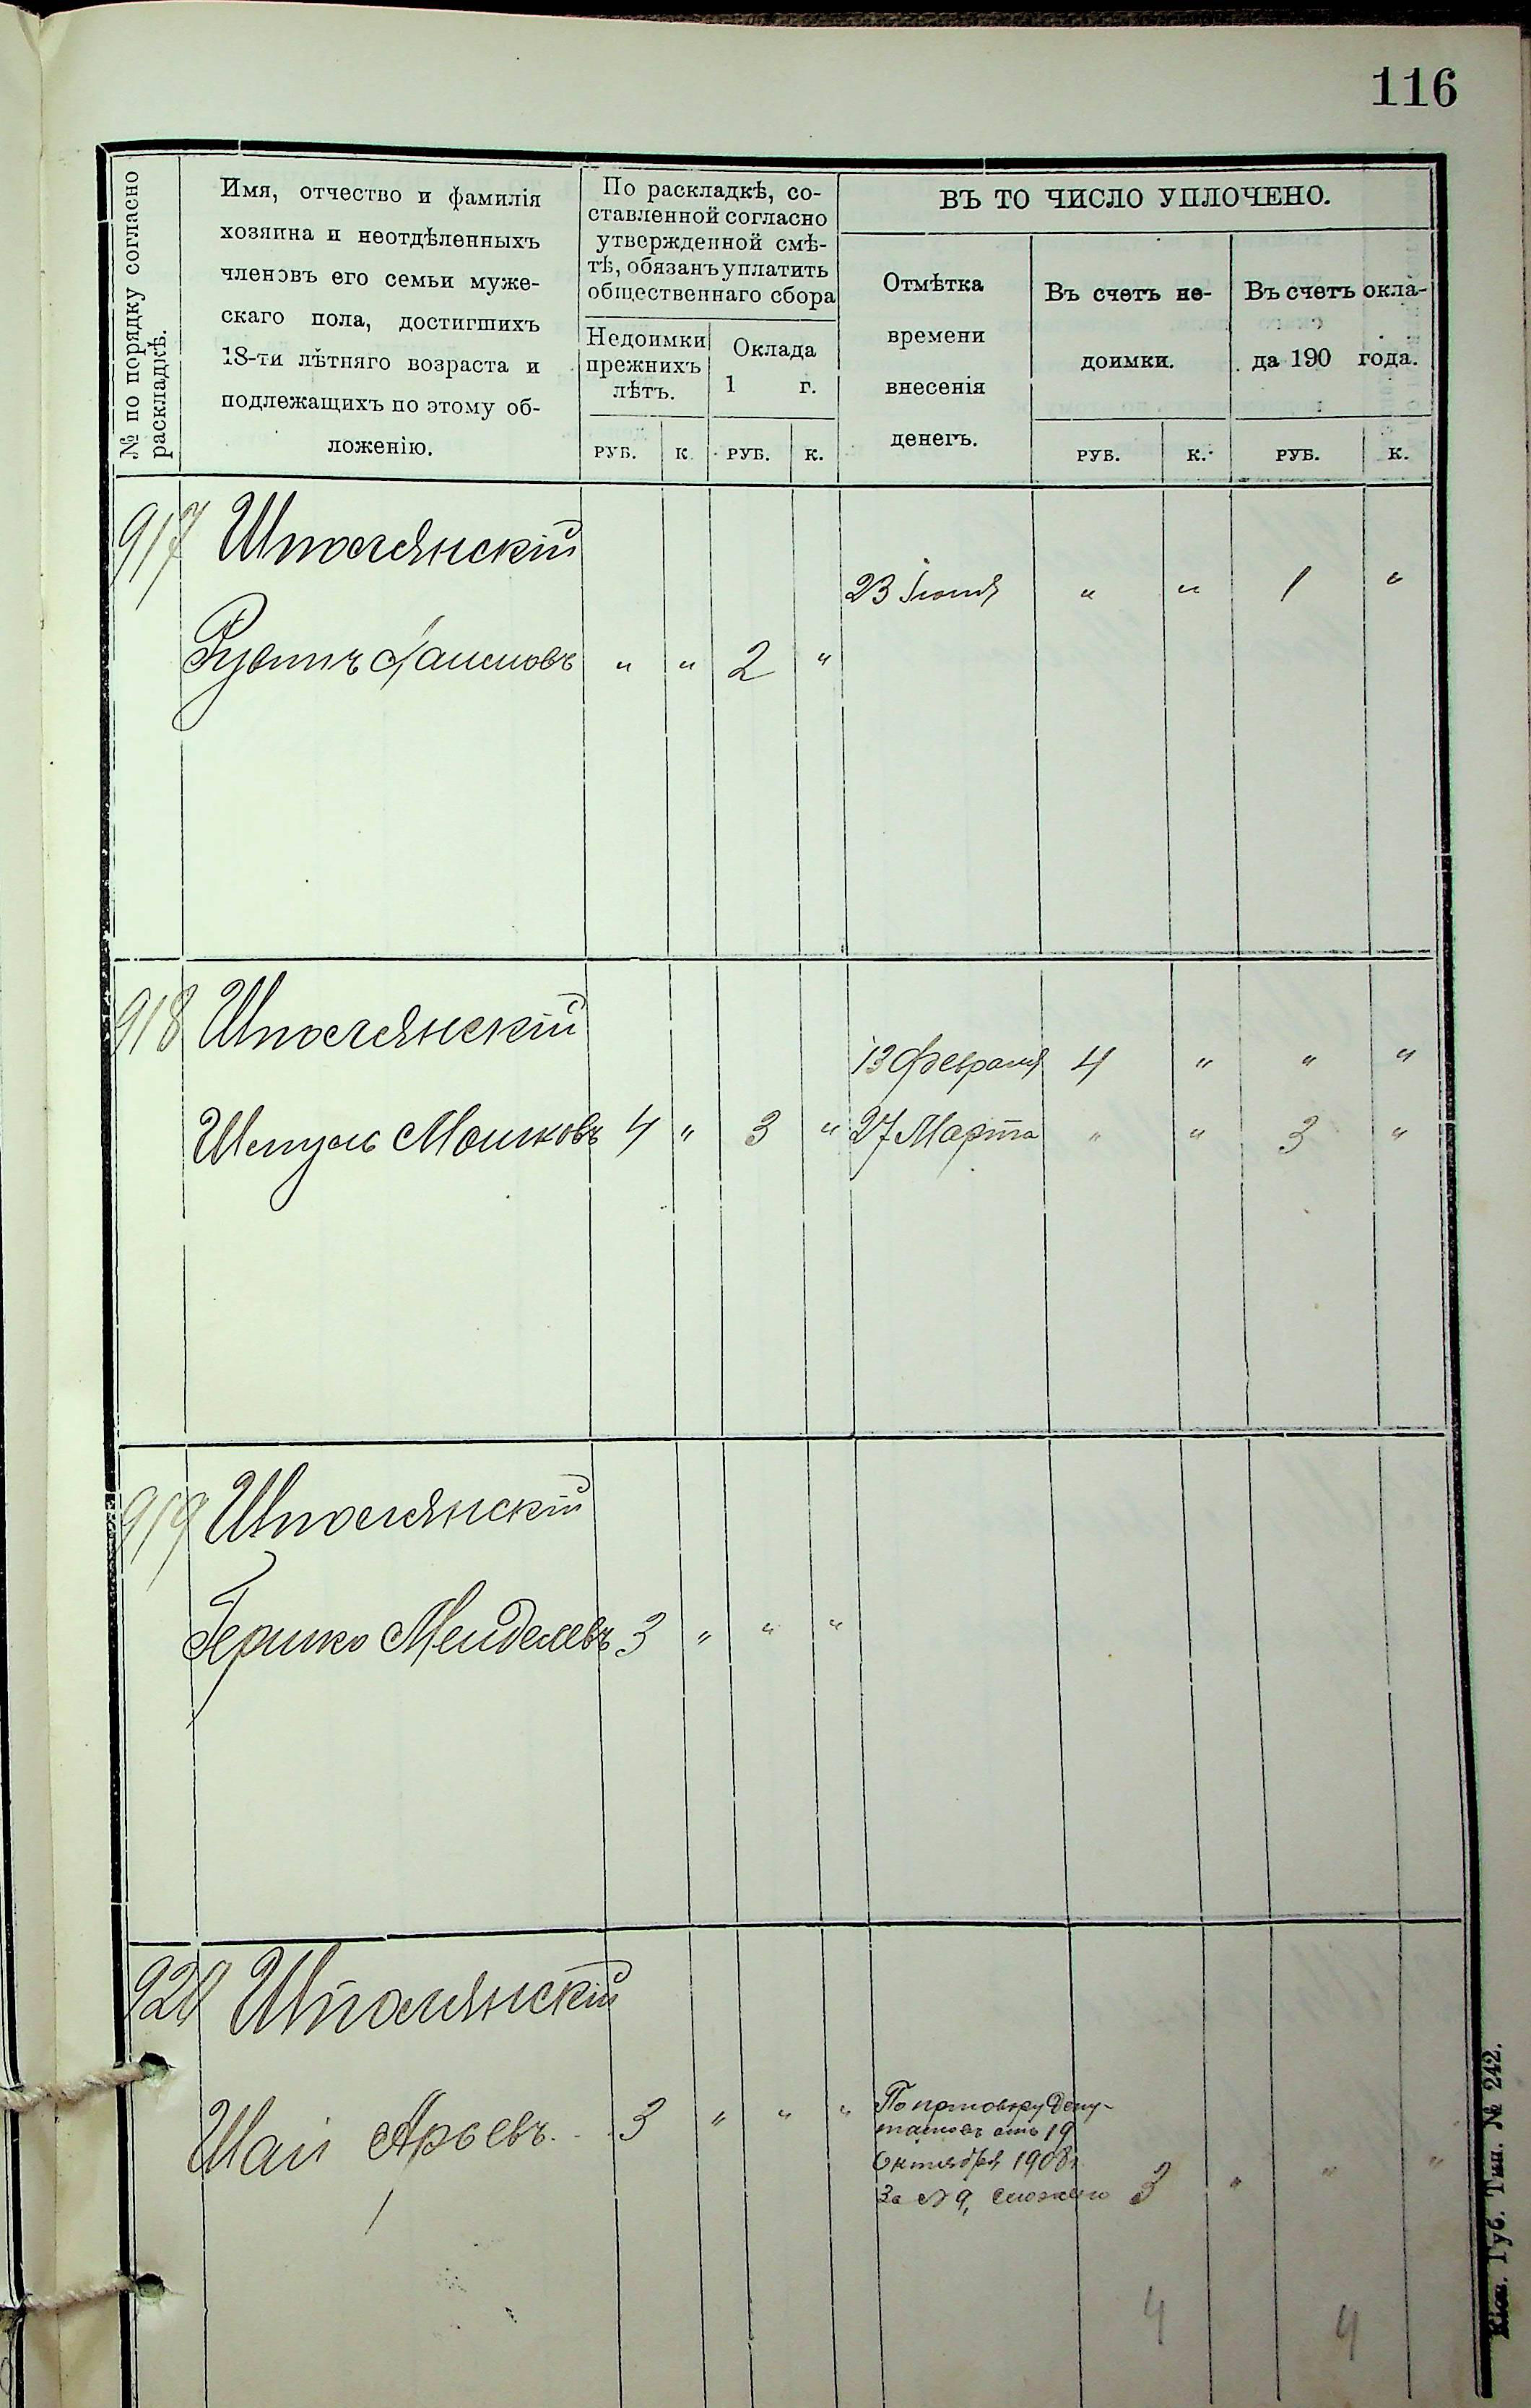 116
№ по порядку согласно
раскладкѣ.
Имя, отчество и фамилія
хозяина и неотдѣленныхъ
членовъ его семьи муже-
скаго пола, достигшихъ
18-ти лѣтняго возраста и
подлежащихъ по этому об-
ложенію.
По раскладкѣ, со-
ставленной согласно
утвержденной смѣ-
тѣ, обязанъ уплатить
общественнаго сбора
Недоимки
прежнихъ
лѣтъ.
Оклада
1 г.
ВЪ ТО ЧИСЛО УПЛОЧЕНО.
Отмѣтка
времени
внесенія
денегъ.
Въ счетъ не-
доимки.
Въ счетъ окла-
да 190 года.
РУБ. К. РУБ. К. РУБ. К. РУБ. К.
917 Шполянскій
23 Іюня " " 1 "
Рувинъ Хаимовъ " " 2 "
918 Шполянскій
13 Февраля 4 " " "
Шмуль Мошковъ 4 " 3 " 27 Марта " " 3 "
919 Шполянскій
Гершко Менделевъ 3 " " "
920 Шполянскій
Шаи Арьевъ 3 " " "
По приговору Депу-
татовъ отъ 19
Октября 1908 г.
За № 9, сложено 3 " " "
4 4
Кіев. Губ. Тип. № 242.